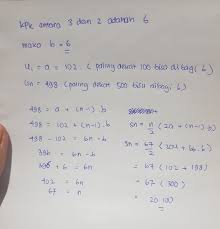 KPK antara 3 dan 2 adalah 6
maka b = 6
U₁ = a = 102 (paling dekat 100 bisa dibagi 6)
Un = 498 (paling dekat 500 bisa dibagi 6)
498 = a + (n-1) . b
498 = 102 + (n-1) . 6
498 - 102 = 6n - 6
396 = 6n - 6
396 + 6 = 6n
402 = 6n
67 = n
Sn = n/2 (2a + (n-1) b)
Sn = 67/2 (204 + 66.6)
= 67 (102 + 198)
= 67 (300)
= 20 100